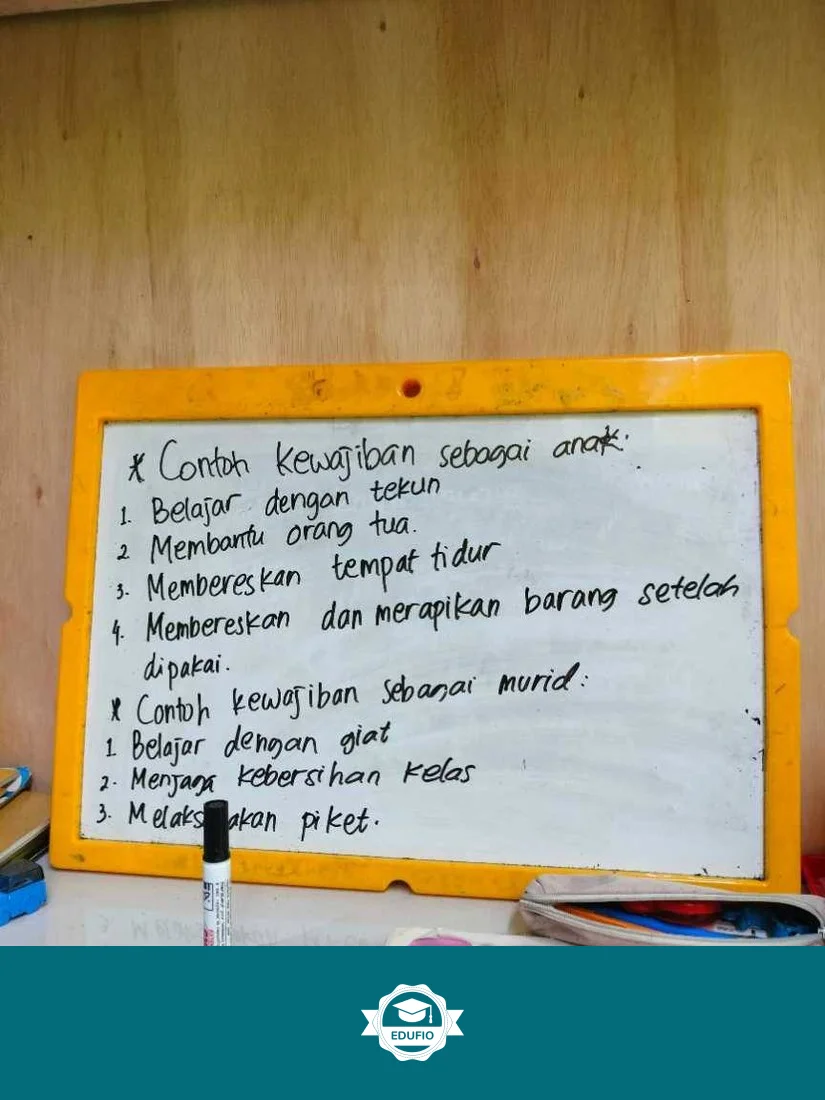 * Contoh kewajiban sebagai anak:
1. Belajar dengan tekun
2 Membantu orang tua.
3. Membereskan tempat tidur
4. Membereskan dan merapikan barang setelah
dipakai.
* Contoh kewajiban sebagai murid:
1 Belajar dengan giat
2. Menjaga kebersihan kelas
3. piket.
EDUFIO